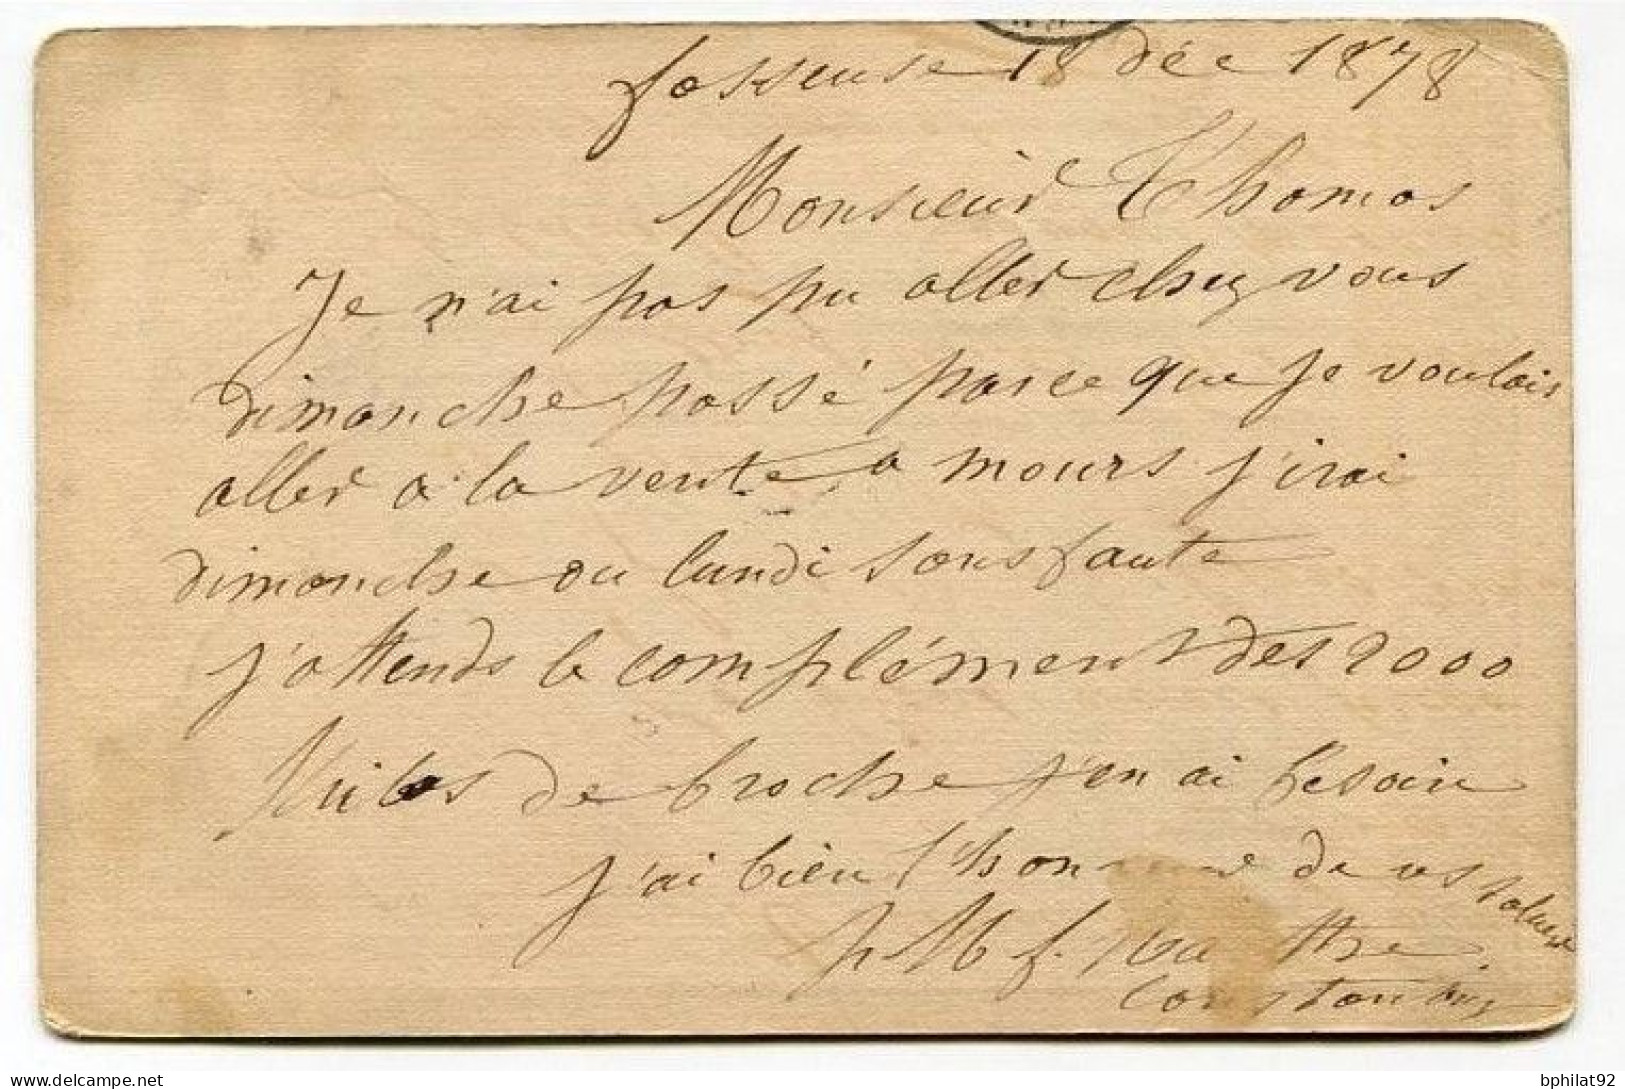 fosseuse 18 déc 1878
Monsieur Thomas
Je n'ai pas pu aller chez vous
dimanche passé parce que je voulais
aller a la vente a mours j'irai
dimanche ou lundi sans faute
j'attends le complément des 2000
de broche j'en ai besoin
j'ai bien l'honneur de vs saluer
p M f.
bphilat92